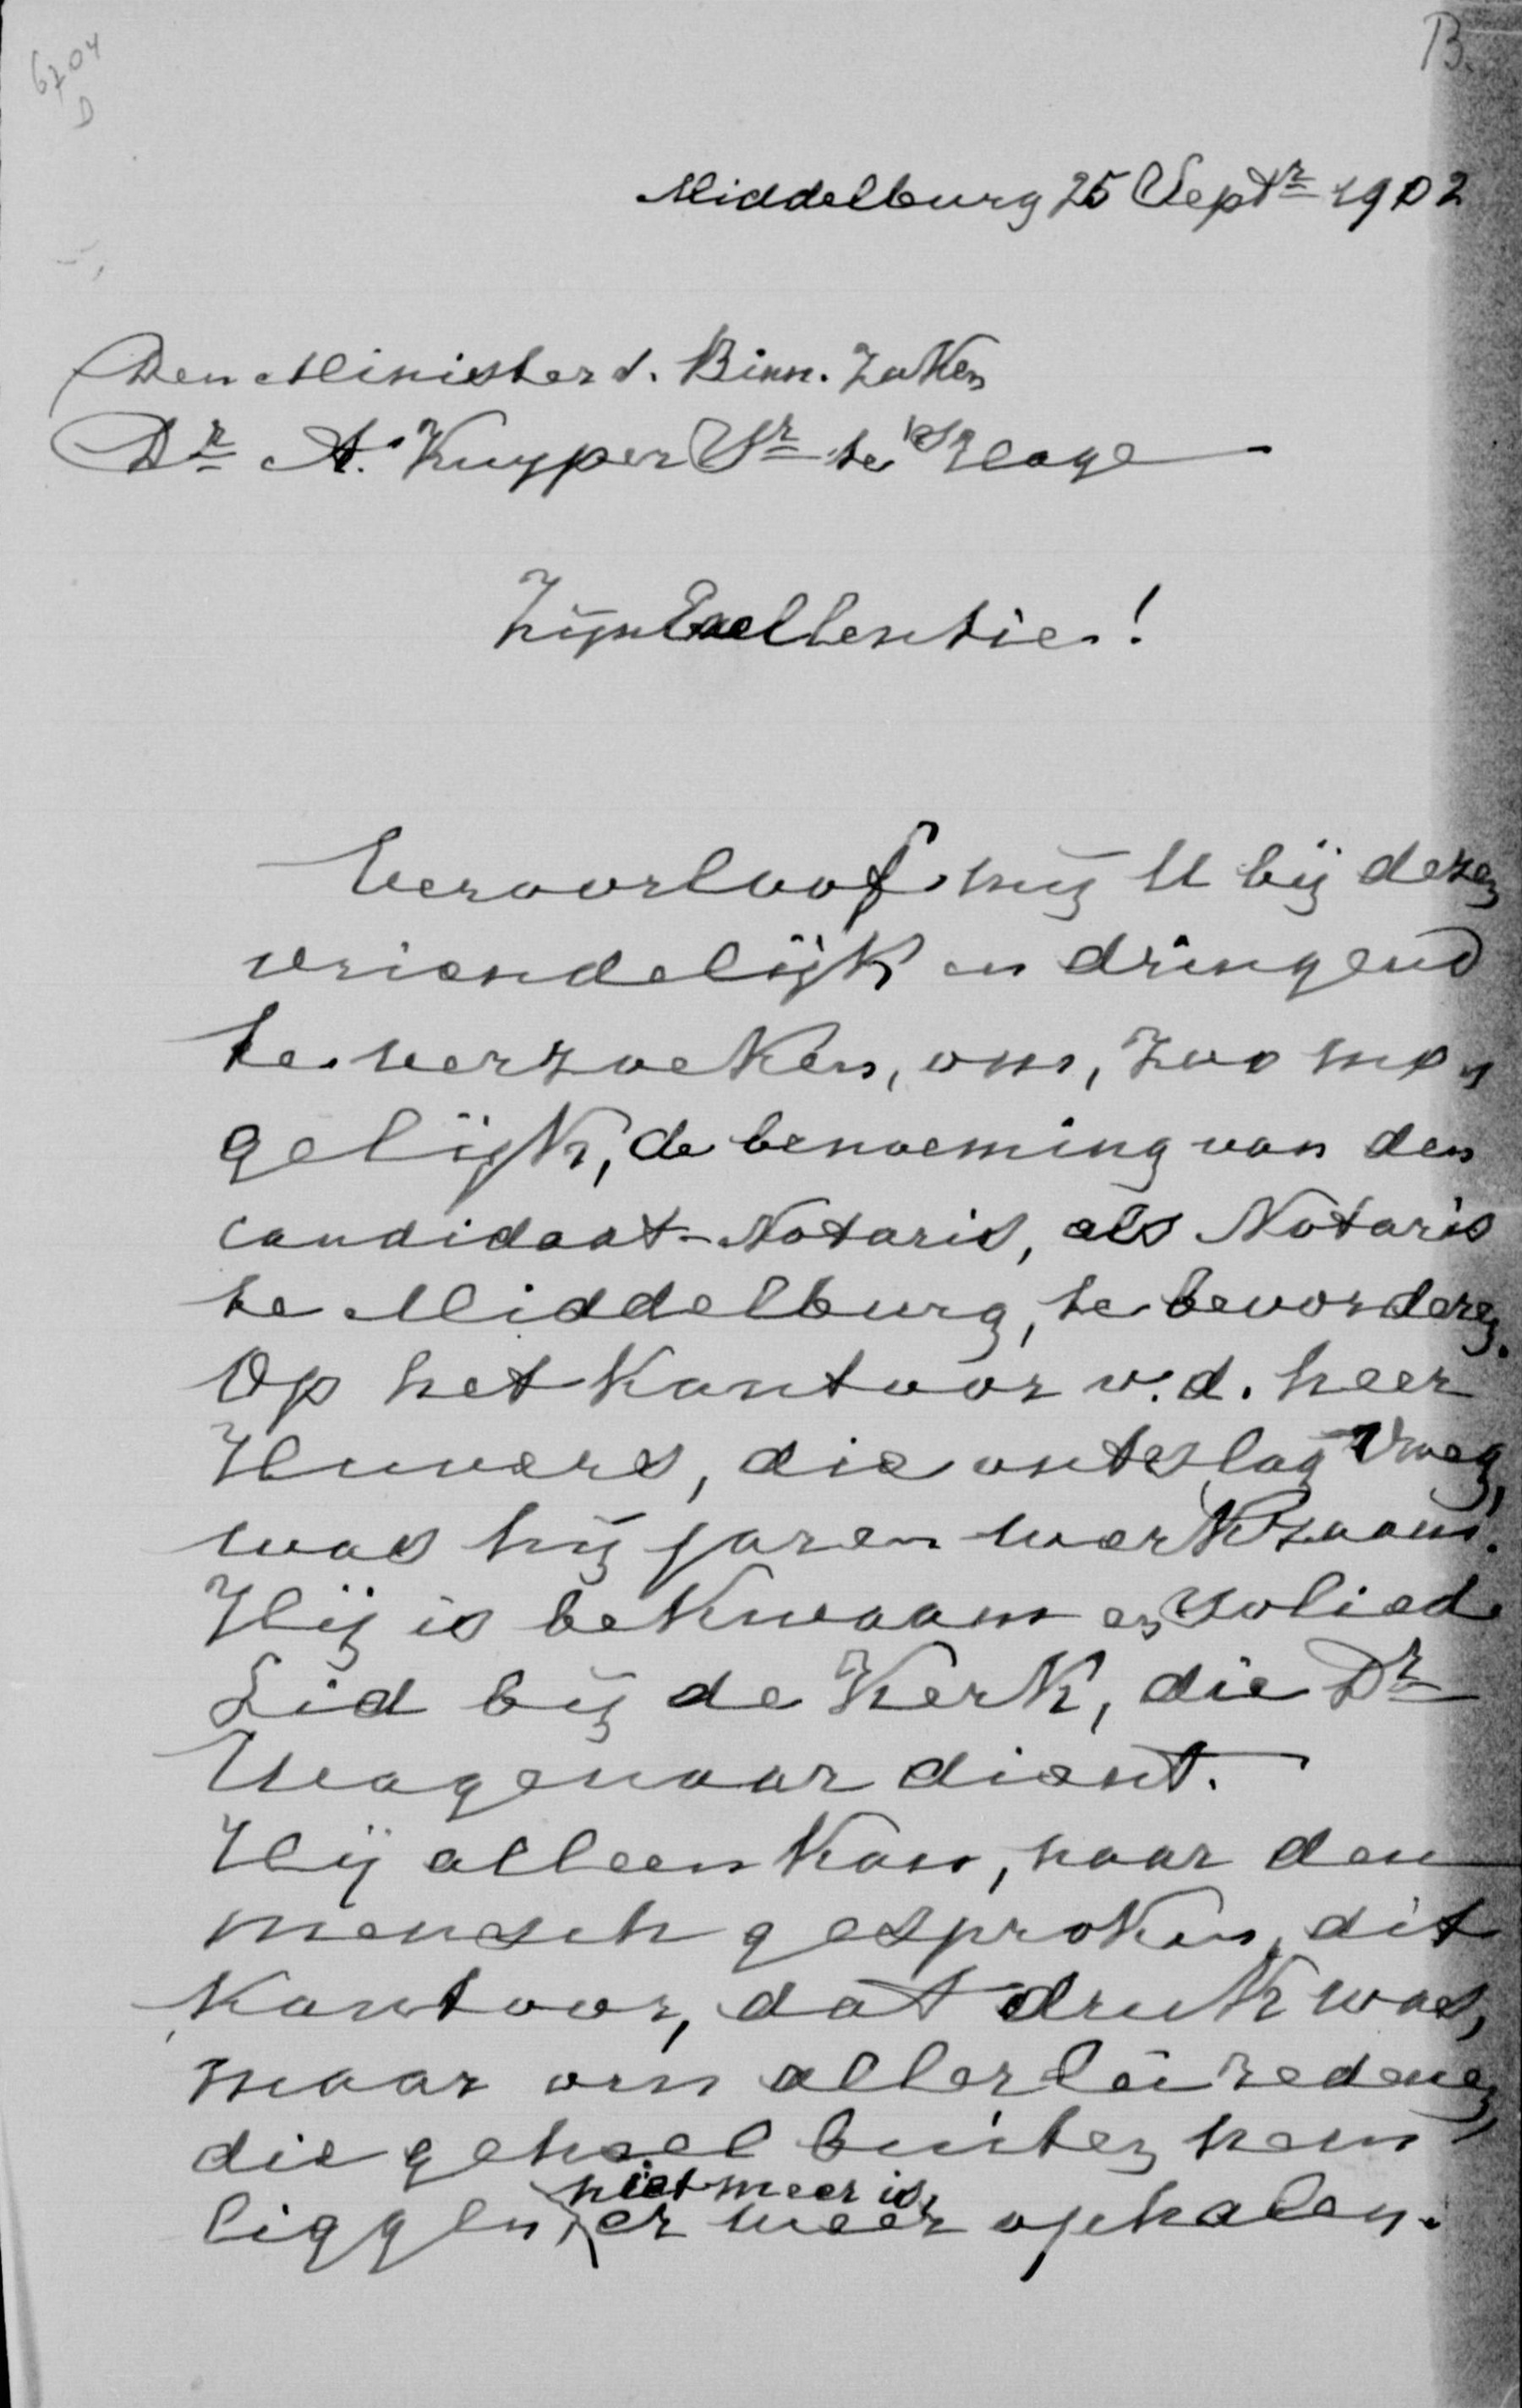 6704
D
B.
Middelburg 25 Septr 1902
Den Minister d. Binn. Zaken
Dr A. Kuyper Sr te 's Hage
Zijn Excellentie!
Veroorloof mij U bij dezen
vriendelijk en dringend
te verzoeken, om, zoo mo
gelijk, de benoeming van den
candidaat-Notaris, als Notaris
te Middelburg, te bevorderen.
Op het Kantoor v.d. heer
Huvers, die ontslag vroeg,
was hij jaren werkzaam.
Hij is bekwaam en solied
Lid bij de Kerk, die Dr
Wagenaar dient.
Hij alleen kan, naar den
mensch gesproken, dit
Kantoor, dat druk was,
maar om allerlei redenen,
die geheel buiten hem
niet meer is,
liggen, er weer ophalen.